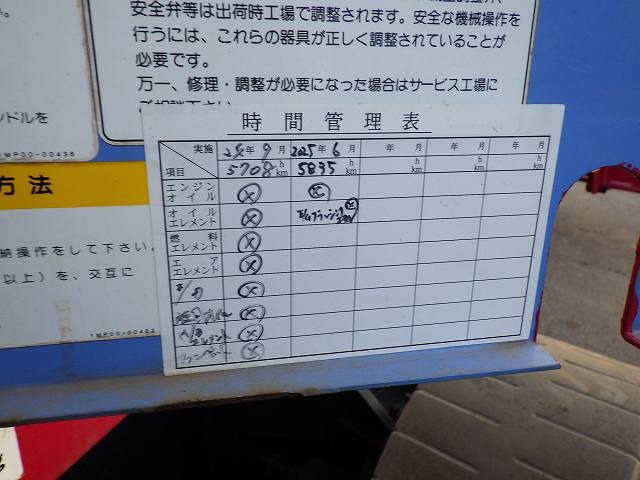 安全弁等は出荷時工場で調整されます。安全な機械操作を
行うには、これらの器具が正しく調整されていることが
必要です。
万一、修理・調整が必要になった場合はサービス工場に
ンドルを
1MP00-00436
方法
納操作をして下さい。
以上）を、交互に
1MP00-00462
時間管理表
実施 24年9月 2025年6月 年 月 年 月 年 月
項目 5708 h km 5835 h km h km h km h km
エンジンオイル ⊗ ⊗
オイルエレメント ⊗ ⊗
燃料エレメント ⊗
エアエレメント ⊗
⊗
⊗
⊗
ファンベルト ⊗